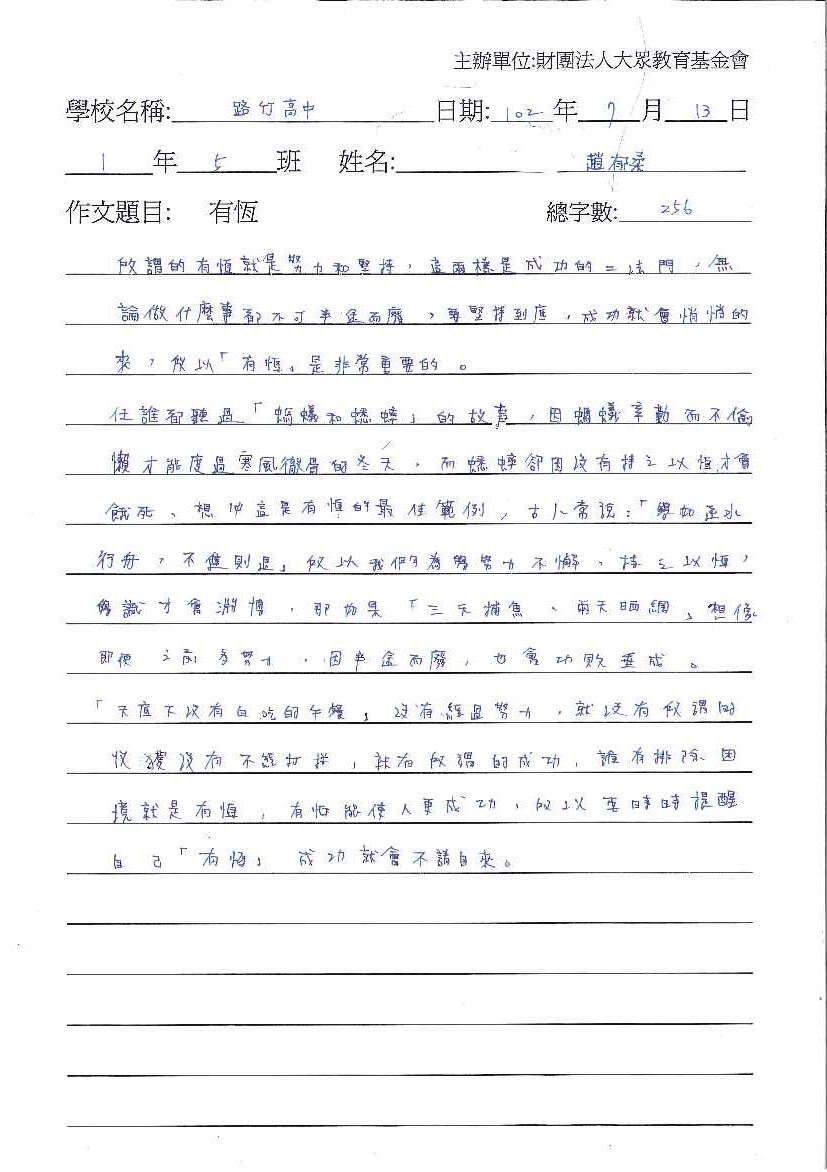 主辦單位:財團法人大眾教育基金會
學校名稱: 路竹高中 日期: 102 年 7 月 13 日
1 年 5 班 姓名: 趙郁柔
作文題目: 有恆 總字數: 256
所謂的有恆就是努力和堅持，這兩樣是成功的二法門，無
論做什麼事都不可半途而廢，要堅持到底，成功就會悄悄的
來，所以「有恆」是非常重要的。
任誰都聽過「螞蟻和蟋蟀」的故事，因螞蟻辛勤而不偷
懶才能度過寒風徹骨的冬天，而蟋蟀卻因沒有持之以恆才會
餓死、想功這是有恆的最佳範例，古人常說：「學如逆水
行舟，不進則退」所以我們為學努力不懈、持之以恆，
學識才會淵博，那如果「三天捕魚、兩天晒網」想像
即便之前多努力，因半途而廢，也會功敗垂成。
「天底下沒有白吃的午餐」沒有經過努力，就沒有所謂的
收穫沒有不經打拼，就有所謂的成功，誰有排除困
境就是有恆，有恆能使人更成功，所以要時時提醒
自己「有恆」成功就會不請自來。